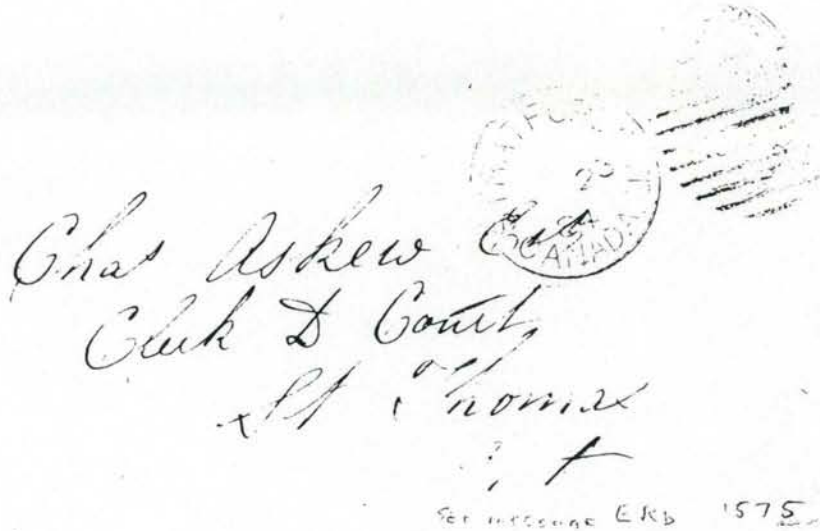 CANADA
24
Chas Askew Esq
Clerk D Court
St Thomas
t
message ERD 1575